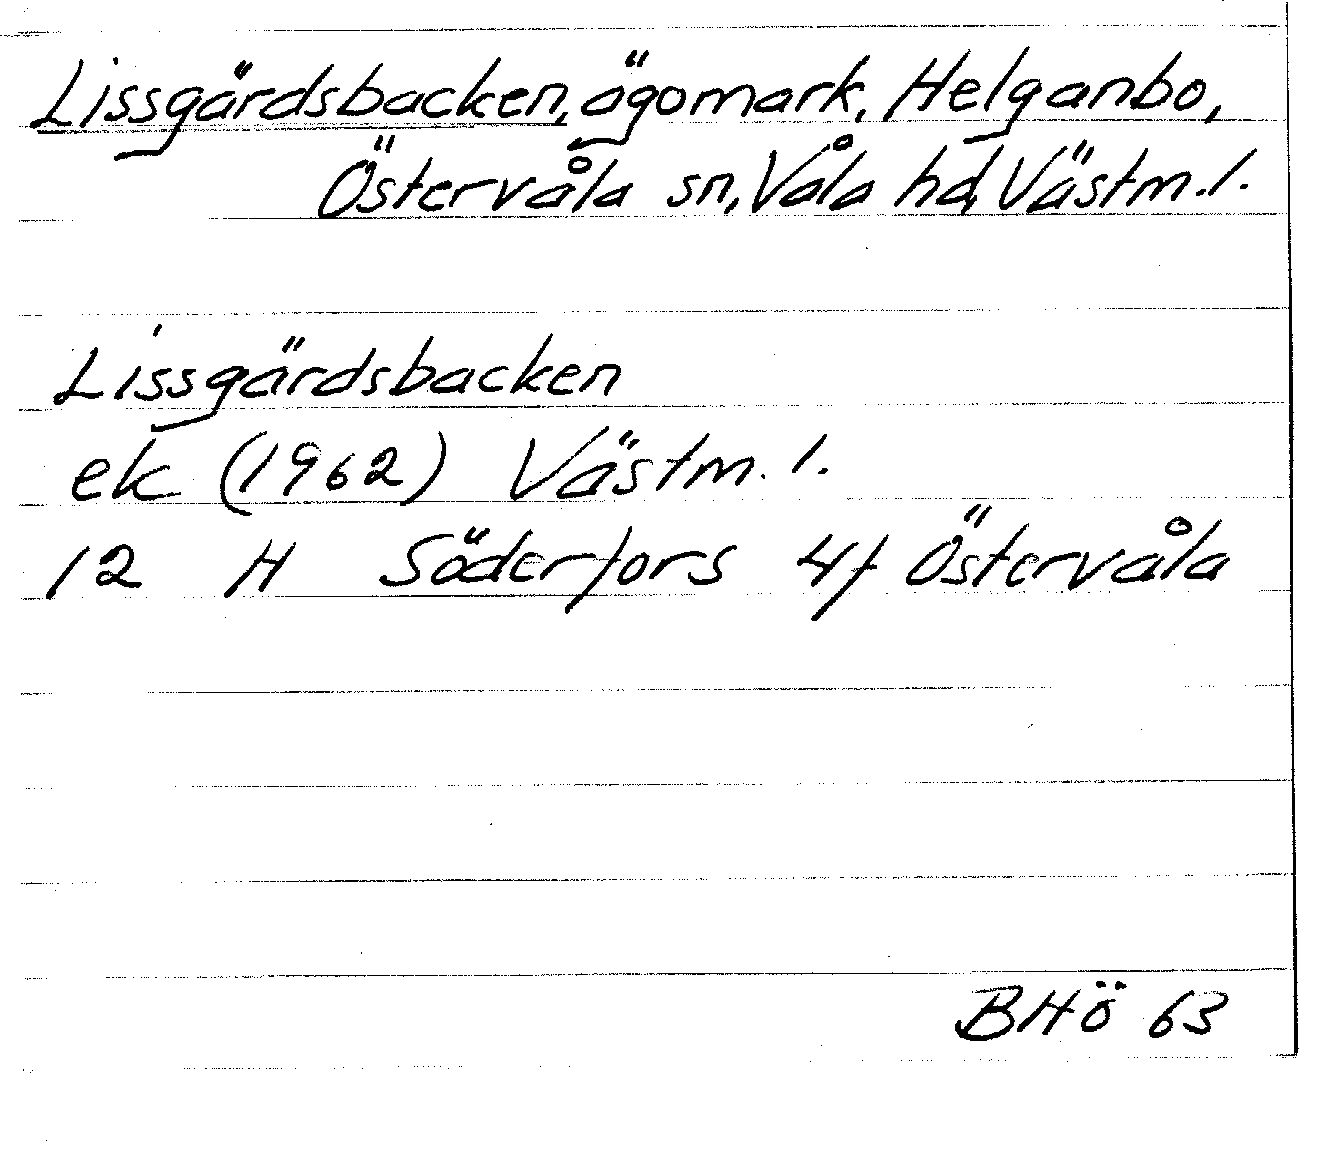 Lissgärdsbacken, ägomark, Helganbo,
Östervåla sn, Våla hd, Västm. l.
Lissgärdsbacken
ek (1962) Västm. l.
12 H Söderfors 4f Östervåla
BHö 63